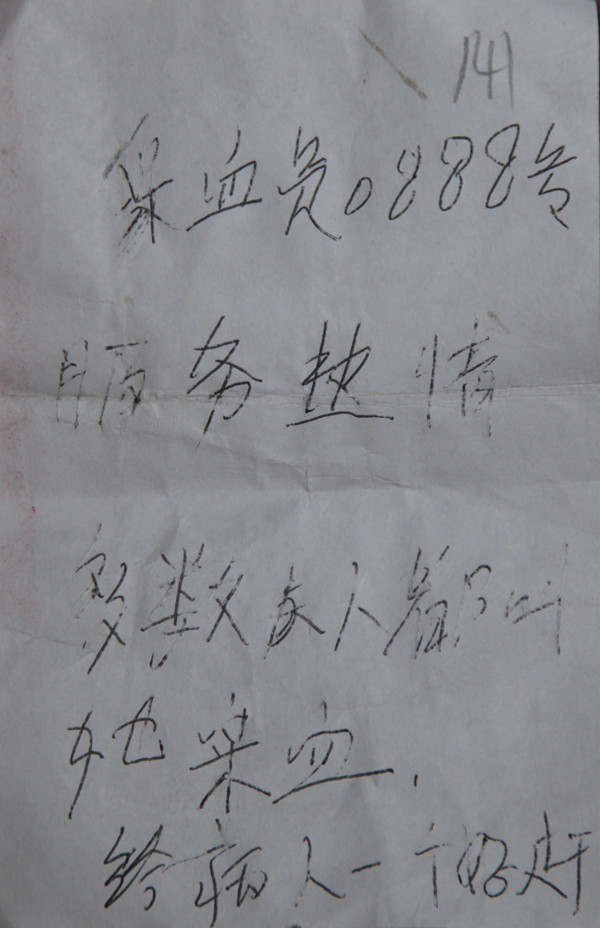 141
采血员0888号
服务热情
多数友人都叫
她采血.
给病人一个好